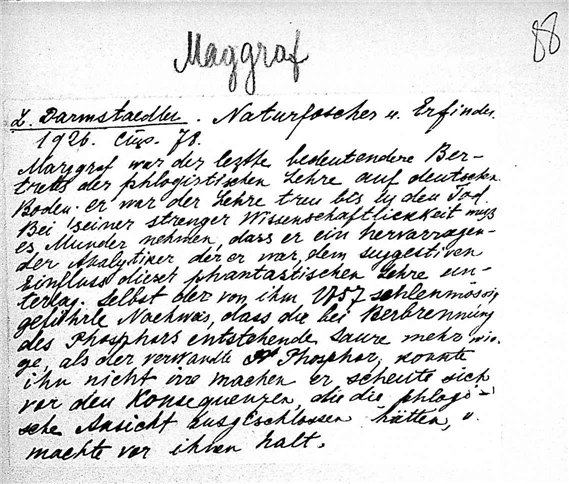 Maggraf
88
L. Darmstaedler. Naturfoscher u. Erfinder.
1926. Cmp. 78.
Marggraf war der lezte bedeutendere Ber-
treter der phlogistischen Lehre auf deutschen
Boden. er war der Lehre treu bis in den Tod.
Bei seiner strenger Wissenschaftlichkeit muß
es Wunder nehmen, dass er ein hervorragen-
der Analytiker der er war, dem suggestiven
Einfluss dieser phantastischen Lehre un-
terlag. Selbst der von ihm
geführte Nachwas, dass die bei Berbrennung
des Phosphors entstehende Saure mehr wie-
ge, als der verwandte Phosphor, konnte
ihn nicht irre machen er scheute sich
vor den Konsequenzen, die die phlogi-
sche Ansicht ausgeschlossen hätten, u.
machte vor ihnen halt.